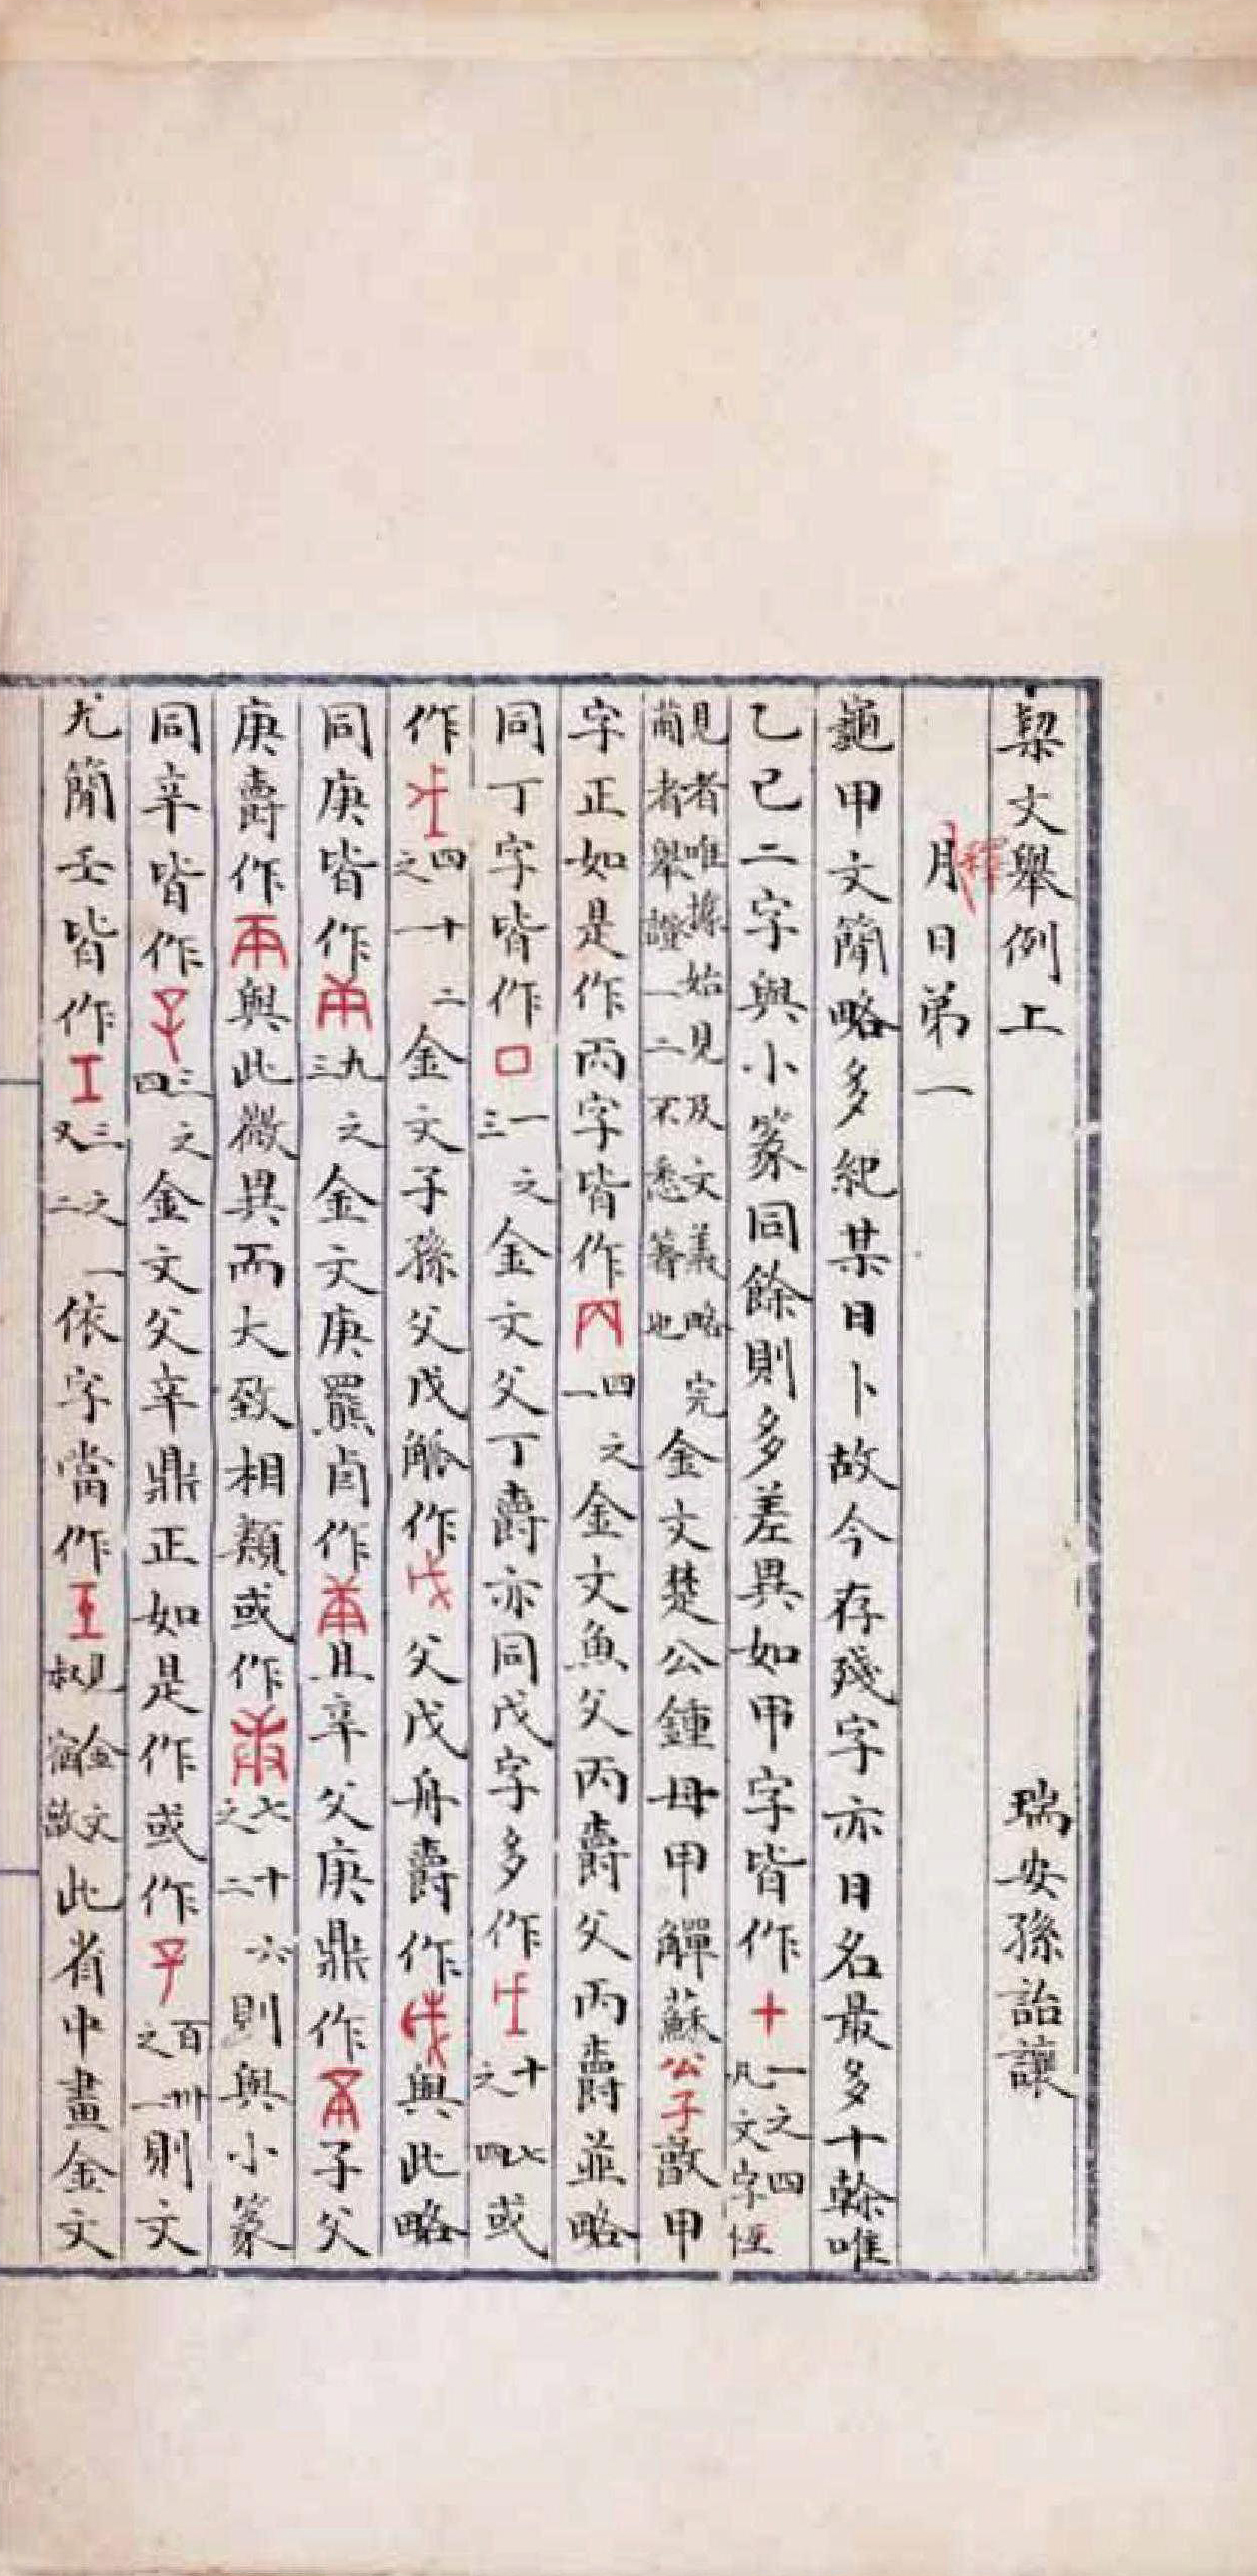 栔文舉例上 瑞安孫詒讓
釋月日弟一
龜甲文簡略多紀某日卜故今存殘字亦日名最多十榦唯
乙己二字與小篆同餘則多差異如甲字皆作十一之四凡文字恆
見者唯據始見及文義略完葡者舉證一二不悉箸也金文楚公鐘母甲觶蘇公子敦甲
字正如是作丙字皆作四之一金文魚父丙爵父丙爵並略
同丁字皆作一之三金文父丁爵亦同戊字多作十七之四或
作四十二之金文子孫父戊觚作父戊舟爵作與此略
同庚皆作九之三金文庚羆卣作且辛父庚鼎作子父
庚爵作與此微異而大致相類或作七十六之二則與小篆
同辛皆作三之四金文父辛鼎正如是作或作百卅之一則文
尤簡壬皆作三之一又二依字當作見金文叔宿敦此省中畫金文